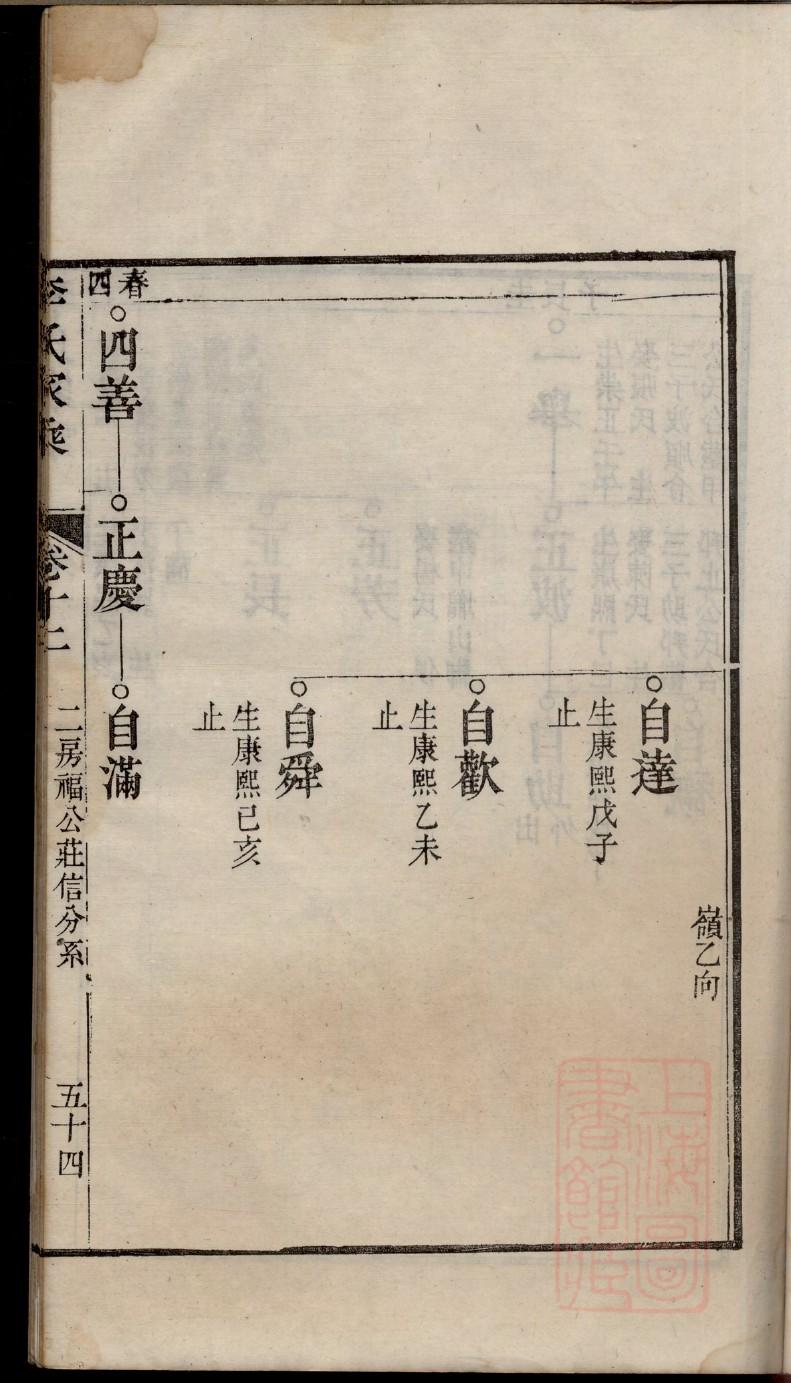 嶺乙向
自達
生康熙戊子
止
自歡
生康熙乙未
止
自舜
生康熙己亥
止
春四
四善
正慶
自滿
李氏家乘
卷十二
二房福公莊信分系
五十四
上海圖書館藏